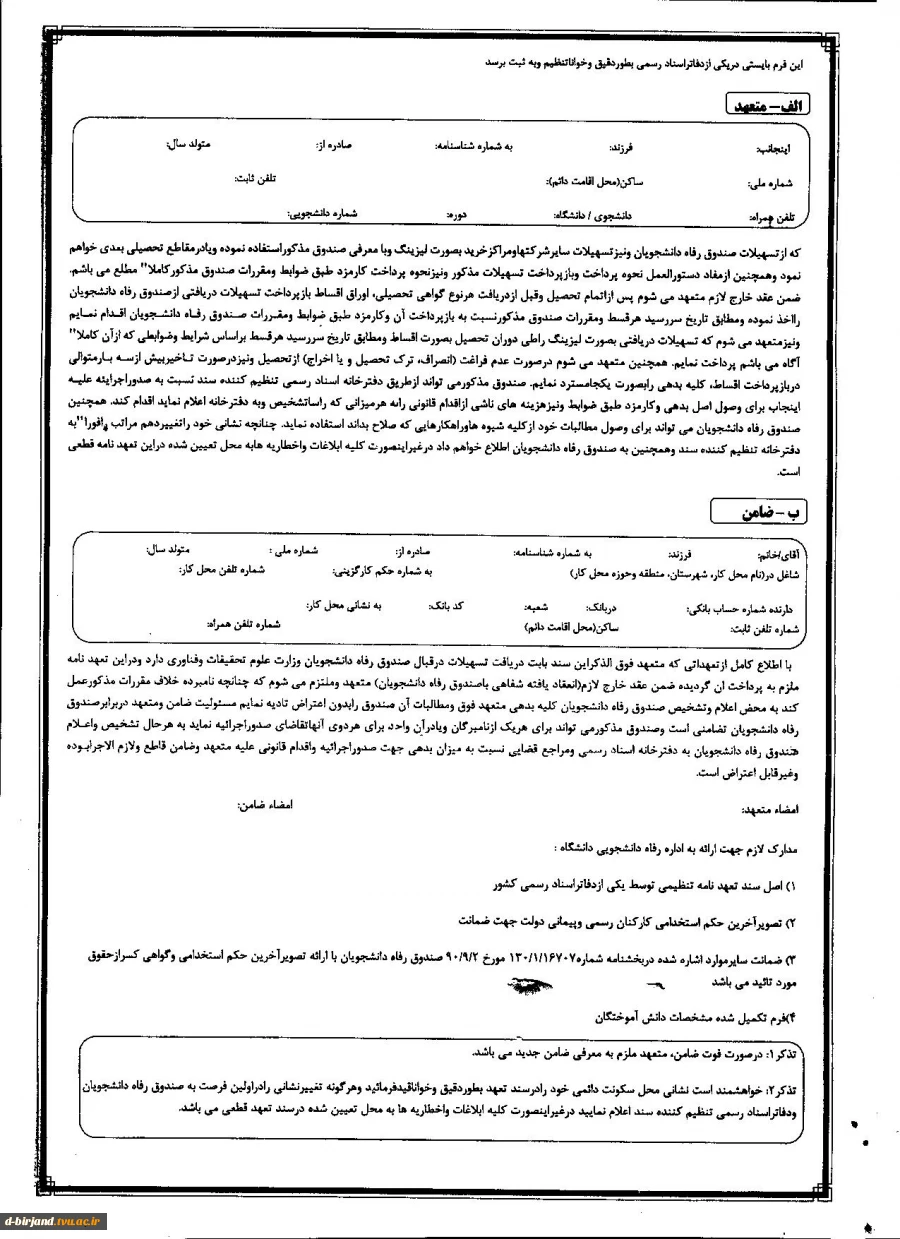 این فرم بایستی دریکی ازدفاتراسناد رسمی بطوردقیق وخواناتنظیم وبه ثبت برسد
الف- متعهد
اینجانب: فرزند: به شماره شناسنامه: صادره از: متولد سال:
شماره ملی: ساکن(محل اقامت دائم): تلفن ثابت:
تلفن همراه: دانشجوی / دانشگاه: دوره: شماره دانشجویی:
که ازتسهیلات صندوق رفاه دانشجویان ونیزتسهیلات سایرشرکتهاومراکزخرید بصورت لیزینگ وبا معرفی صندوق مذکوراستفاده نموده ویادرمقاطع تحصیلی بعدی خواهم
نمود وهمچنین ازمفاد دستورالعمل نحوه پرداخت وبازپرداخت تسهیلات مذکور ونیزنحوه پرداخت کارمزد طبق ضوابط ومقررات صندوق مذکورکاملا" مطلع می باشم.
ضمن عقد خارج لازم متعهد می شوم پس ازاتمام تحصیل وقبل ازدریافت هرنوع گواهی تحصیلی، اوراق اقساط بازپرداخت تسهیلات دریافتی ازصندوق رفاه دانشجویان
رااخذ نموده ومطابق تاریخ سررسید هرقسط ومقررات صندوق مذکورنسبت به بازپرداخت آن وکارمزد طبق ضوابط ومقررات صندوق رفاه دانشجویان اقدام نمایم
ونیزمتعهد می شوم که تسهیلات دریافتی بصورت لیزینگ راطی دوران تحصیل بصورت اقساط ومطابق تاریخ سررسید هرقسط براساس شرایط وضوابطی که ازآن کاملا"
آگاه می باشم پرداخت نمایم. همچنین متعهد می شوم درصورت عدم فراغت (انصراف، ترک تحصیل و یا اخراج) ازتحصیل ونیزدرصورت تاخیربیش ازسه بارمتوالی
دربازپرداخت اقساط، کلیه بدهی رابصورت یکجامسترد نمایم. صندوق مذکورمی تواند ازطریق دفترخانه اسناد رسمی تنظیم کننده سند نسبت به صدوراجرائیه علیه
اینجاب برای وصول اصل بدهی وکارمزد طبق ضوابط ونیزهزینه های ناشی ازاقدام قانونی رابه هرمیزانی که راساتشخیص وبه دفترخانه اعلام نماید اقدام کند. همچنین
صندوق رفاه دانشجویان می تواند برای وصول مطالبات خود ازکلیه شیوه هاوراهکارهایی که صلاح بداند استفاده نماید. چنانچه نشانی خود راتغییردهم مراتب رافورا"به
دفترخانه تنظیم کننده سند وهمچنین به صندوق رفاه دانشجویان اطلاع خواهم داد درغیراینصورت کلیه ابلاغات واخطاریه هابه محل تعیین شده دراین تعهد نامه قطعی
است.
ب- ضامن
آقای/خانم: فرزند: به شماره شناسنامه: صادره از: شماره ملی : متولد سال:
شاغل در(نام محل کار، شهرستان، منطقه وحوزه محل کار) به شماره حکم کارگزینی: شماره تلفن محل کار:
دارنده شماره حساب بانکی: دربانک: شعبه: کد بانک: به نشانی محل کار:
شماره تلفن ثابت: ساکن(محل اقامت دائم) شماره تلفن همراه:
با اطلاع کامل ازتعهداتی که متعهد فوق الذکراین سند بابت دریافت تسهیلات درقبال صندوق رفاه دانشجویان وزارت علوم تحقیقات وفناوری دارد ودراین تعهد نامه
ملزم به پرداخت آن گردیده ضمن عقد خارج لازم(انعقاد یافته شفاهی باصندوق رفاه دانشجویان) متعهد وملتزم می شوم که چنانچه نامبرده خلاف مقررات مذکورعمل
کند به محض اعلام وتشخیص صندوق رفاه دانشجویان کلیه بدهی متعهد فوق ومطالبات آن صندوق رابدون اعتراض تادیه نمایم مسئولیت ضامن ومتعهد دربرابرصندوق
رفاه دانشجویان تضامنی است وصندوق مذکورمی تواند برای هریک ازنامبرگان ویادرآن واحد برای هردوی آنهاتقاضای صدوراجرائیه نماید به هرحال تشخیص واعلام
صندوق رفاه دانشجویان به دفترخانه اسناد رسمی ومراجع قضایی نسبت به میزان بدهی جهت صدوراجرائیه واقدام قانونی علیه متعهد وضامن قاطع ولازم الاجرابوده
وغیرقابل اعتراض است.
امضاء متعهد: امضاء ضامن:
مدارک لازم جهت ارائه به اداره رفاه دانشجویی دانشگاه :
۱) اصل سند تعهد نامه تنظیمی توسط یکی ازدفاتراسناد رسمی کشور
۲) تصویرآخرین حکم استخدامی کارکنان رسمی وپیمانی دولت جهت ضمانت
۳) ضمانت سایرموارد اشاره شده دربخشنامه شماره۱۳۰/۱/۱۶۷۰۷ مورخ ۹۰/۹/۲ صندوق رفاه دانشجویان با ارائه تصویرآخرین حکم استخدامی وگواهی کسرازحقوق
مورد تائید می باشد
۴)فرم تکمیل شده مشخصات دانش آموختگان
تذکر۱: درصورت فوت ضامن، متعهد ملزم به معرفی ضامن جدید می باشد.
تذکر۲: خواهشمند است نشانی محل سکونت دائمی خود رادرسند تعهد بطوردقیق وخواناقیدفرمائید وهرگونه تغییرنشانی رادراولین فرصت به صندوق رفاه دانشجویان
ودفاتراسناد رسمی تنظیم کننده سند اعلام نمایید درغیراینصورت کلیه ابلاغات واخطاریه ها به محل تعیین شده درسند تعهد قطعی می باشد.
d-birjand.tvu.ac.ir